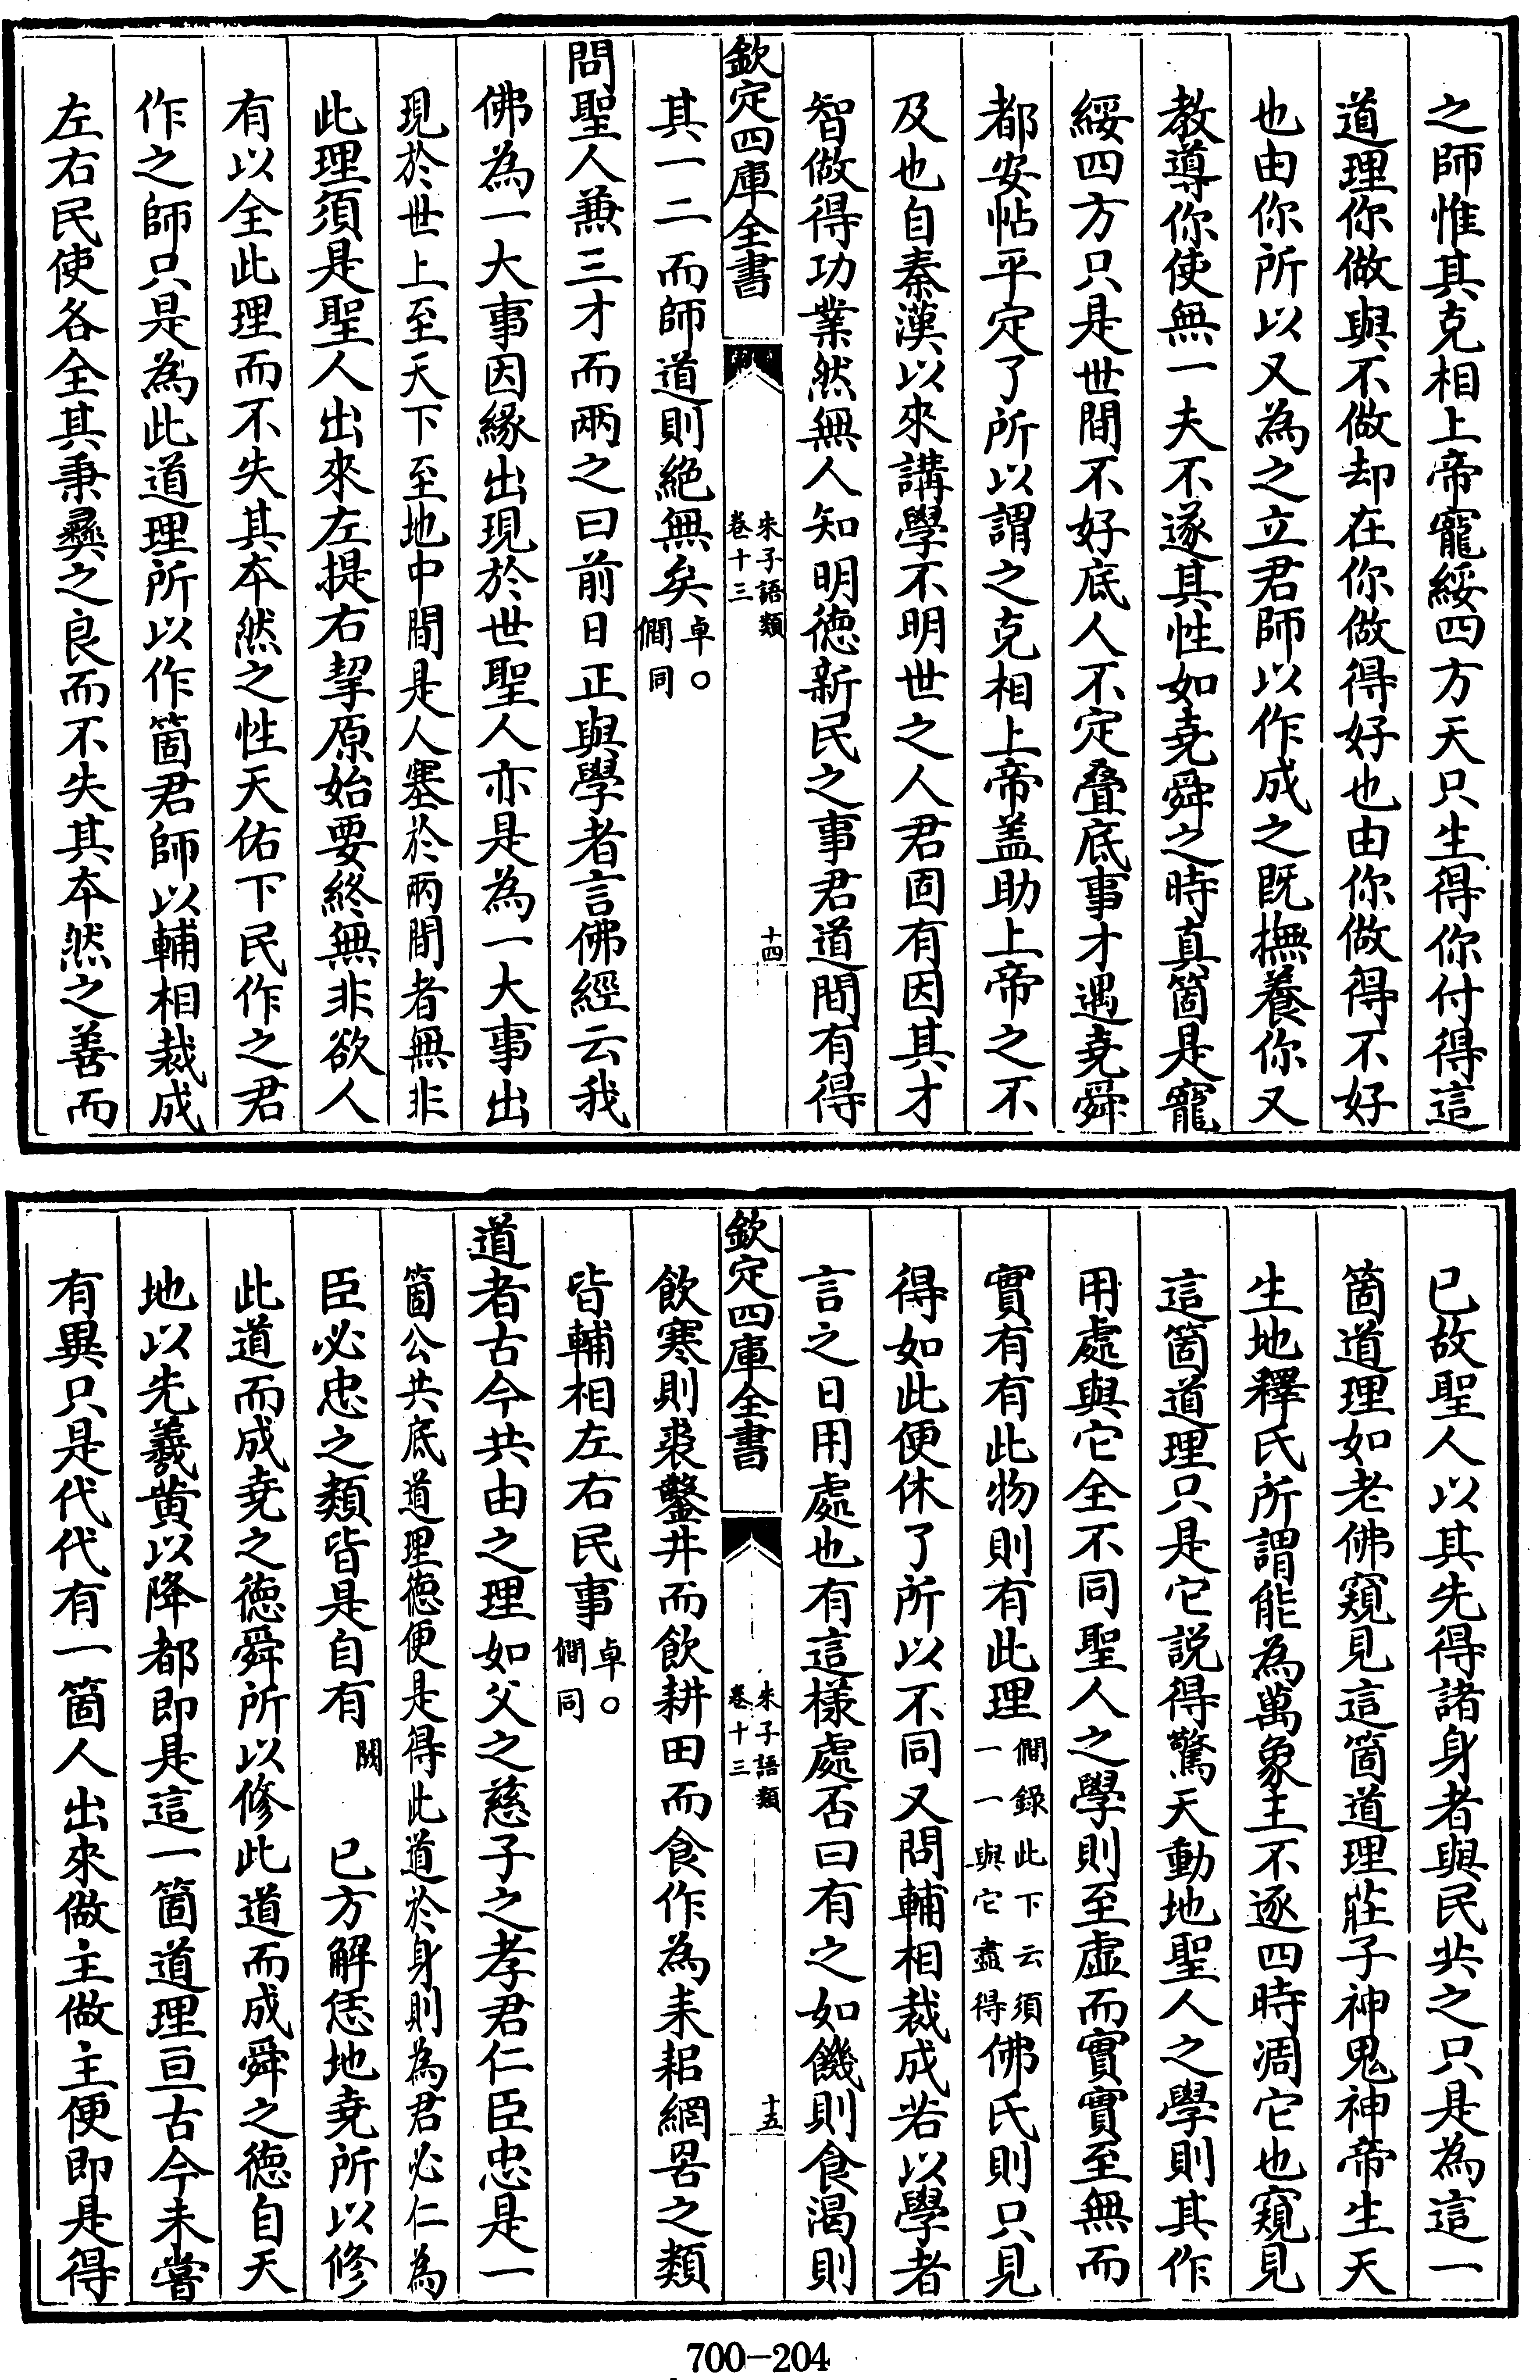 之師惟其克相上帝寵綏四方天只生得你付得這
道理你做與不做却在你做得好也由你做得不好
也由你所以又為之立君師以作成之既撫養你又
教導你使無一夫不遂其性如堯舜之時真箇是寵
綏四方只是世間不好底人不定疊底事才遇堯舜
都安帖平定了所以謂之克相上帝盖助上帝之不
及也自秦漢以來講學不明世之人君固有因其才
智做得功業然無人知明徳新民之事君道間有得
欽定四庫全書
朱子語類
卷十三
十四
其一二而師道則絶無矣卓○
僩同
問聖人兼三才而兩之曰前日正與學者言佛經云我
佛為一大事因縁出現於世聖人亦是為一大事出
現於世上至天下至地中間是人塞於兩間者無非
此理須是聖人出來左提右挈原始要終無非欲人
有以全此理而不失其本然之性天佑下民作之君
作之師只是為此道理所以作箇君師以輔相裁成
左右民使各全其秉彛之良而不失其本然之善而
已故聖人以其先得諸身者與民共之只是為這一
箇道理如老佛窺見這箇道理莊子神鬼神帝生天
生地釋氏所謂能為萬象主不逐四時凋它也窺見
這箇道理只是它説得驚天動地聖人之學則其作
用處與它全不同聖人之學則至虚而實實至無而
實有有此物則有此理僩錄此下云須
一一與它盡得佛氏則只見
得如此便休了所以不同又問輔相裁成若以學者
言之日用處也有這様處否曰有之如饑則食渴則
欽定四庫全書
朱子語類
卷十三
十五
飲寒則裘鑿井而飲耕田而食作為耒耜網罟之類
皆輔相左右民事卓○
僩同
道者古今共由之理如父之慈子之孝君仁臣忠是一
箇公共底道理徳便是得此道於身則為君必仁為
臣必忠之類皆是自有闕已方解恁地堯所以修
此道而成堯之徳舜所以修此道而成舜之徳自天
地以先羲黄以降都即是這一箇道理亘古今未嘗
有異只是代代有一箇人出來做主做主便即是得
700-204